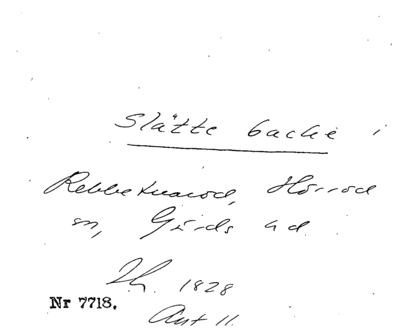 Slätte backe i
Rebbetuaröd, Hörröd
sn, Gärds hd
Th. 1828
Nr 7718.
Ant 11.